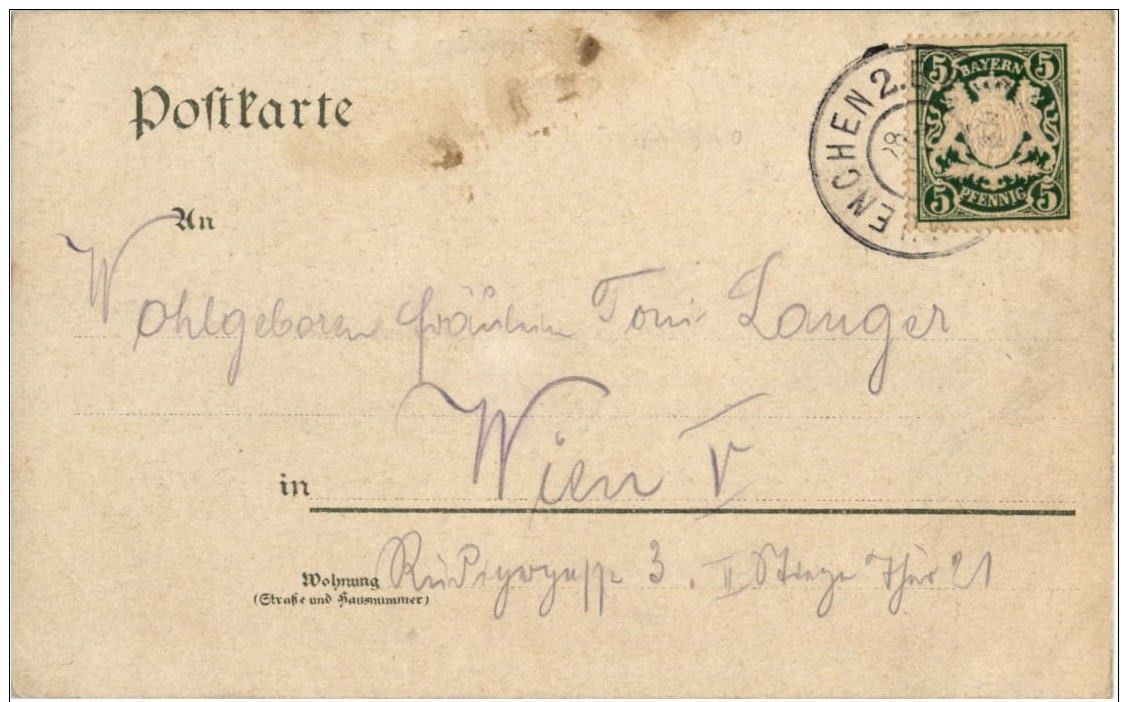 Postkarte
MUENCHEN 2.
28.
5 BAYERN 5
5 PFENNIG 5
An
Wohlgeboren Fräulein Toni Langer
in Wien V
Wohnung Rüdigergasse 3. II Stiege Thür 21
(Straße und Hausnummer)